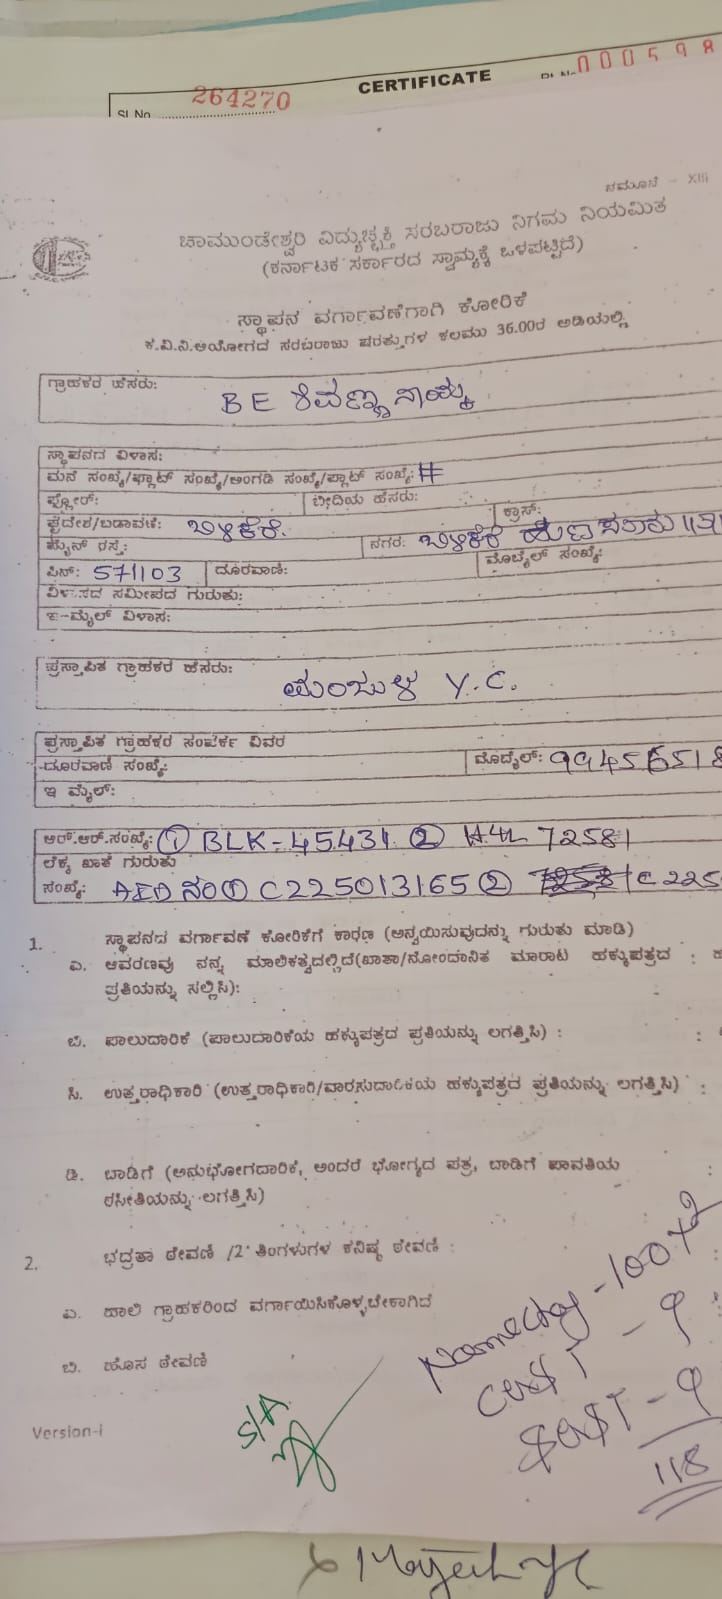 CERTIFICATE
000598
Sl.No. 264270
ನಮೂನೆ - XIII
ಚಾಮುಂಡೇಶ್ವರಿ ವಿದ್ಯುಚ್ಛಕ್ತಿ ಸರಬರಾಜು ನಿಗಮ ನಿಯಮಿತ
(ಕರ್ನಾಟಕ ಸರ್ಕಾರದ ಸ್ವಾಮ್ಯಕ್ಕೆ ಒಳಪಟ್ಟಿದೆ)
ಸ್ಥಾಪನ ವರ್ಗಾವಣೆಗಾಗಿ ಕೋರಿಕೆ
ಕ.ವಿ.ನಿ.ಆಯೋಗದ ಸರಬರಾಜು ಷರತ್ತುಗಳ ಕಲಮು 36.00ರ ಅಡಿಯಲ್ಲಿ
ಗ್ರಾಹಕರ ಹೆಸರು: BE ಶಿವಣ್ಣ ನಾಯ್ಕ
ಸ್ಥಾಪನದ ವಿಳಾಸ:
ಮನೆ ಸಂಖ್ಯೆ/ಫ್ಲಾಟ್ ಸಂಖ್ಯೆ/ಅಂಗಡಿ ಸಂಖ್ಯೆ/ಪ್ಲಾಟ್ ಸಂಖ್ಯೆ: #
ಫ್ಲೋರ್: ಬೀದಿಯ ಹೆಸರು: ಕ್ರಾಸ್:
ಪ್ರದೇಶ/ಬಡಾವಣೆ: ಬಿಳಿಕೆರೆ.
ಮೈನ್ ರಸ್ತೆ: ನಗರ: ಬಿಳಿಕೆರೆ
ಪಿನ್: 571103 ದೂರವಾಣಿ: ಮೊಬೈಲ್ ಸಂಖ್ಯೆ:
ವಿಳಾಸದ ಸಮೀಪದ ಗುರುತು:
ಇ-ಮೈಲ್ ವಿಳಾಸ:
ಪ್ರಸ್ತಾಪಿತ ಗ್ರಾಹಕರ ಹೆಸರು: ಮಂಜುಳ Y.C.
ಪ್ರಸ್ತಾಪಿತ ಗ್ರಾಹಕರ ಸಂಪರ್ಕ ವಿವರ
ದೂರವಾಣಿ ಸಂಖ್ಯೆ: ಮೊಬೈಲ್: 99456518
ಇ ಮೈಲ್:
ಆರ್.ಆರ್.ಸಂಖ್ಯೆ: ① BLK-45431 ② 72581
ಲೆಕ್ಕ ಖಾತೆ ಗುರುತು
ಸಂಖ್ಯೆ: AED ನಂ ① C225013165 ② C225
1. ಸ್ಥಾಪನದ ವರ್ಗಾವಣೆ ಕೋರಿಕೆಗೆ ಕಾರಣ (ಅನ್ವಯಿಸುವುದನ್ನು ಗುರುತು ಮಾಡಿ)
ಎ. ಆವರಣವು ನನ್ನ ಮಾಲಿಕತ್ವದಲ್ಲಿದೆ(ಖಾತಾ/ನೋಂದಾನಿತ ಮಾರಾಟ ಹಕ್ಕುಪತ್ರದ :
ಪ್ರತಿಯನ್ನು ಸಲ್ಲಿಸಿ):
ಬಿ. ಪಾಲುದಾರಿಕೆ (ಪಾಲುದಾರಿಕೆಯ ಹಕ್ಕುಪತ್ರದ ಪ್ರತಿಯನ್ನು ಲಗತ್ತಿಸಿ) : :
ಸಿ. ಉತ್ತರಾಧಿಕಾರಿ (ಉತ್ತರಾಧಿಕಾರಿ/ವಾರಸುದಾರಿಕೆಯ ಹಕ್ಕುಪತ್ರದ ಪ್ರತಿಯನ್ನು ಲಗತ್ತಿಸಿ) :
ಡಿ. ಬಾಡಿಗೆ (ಅನುಭೋಗದಾರಿಕೆ, ಅಂದರೆ ಭೋಗ್ಯದ ಪತ್ರ, ಬಾಡಿಗೆ ಪಾವತಿಯ :
ರಸೀತಿಯನ್ನು ಲಗತ್ತಿಸಿ)
2. ಭದ್ರತಾ ಠೇವಣಿ /2 ತಿಂಗಳುಗಳ ಕನಿಷ್ಠ ಠೇವಣಿ :
ಎ. ಹಾಲಿ ಗ್ರಾಹಕರಿಂದ ವರ್ಗಾಯಿಸಿಕೊಳ್ಳಬೇಕಾಗಿದೆ
ಬಿ. ಹೊಸ ಠೇವಣಿ
Name Chg - 100 x 2
CGST - 9
SGST - 9
118
S/A
Version-i